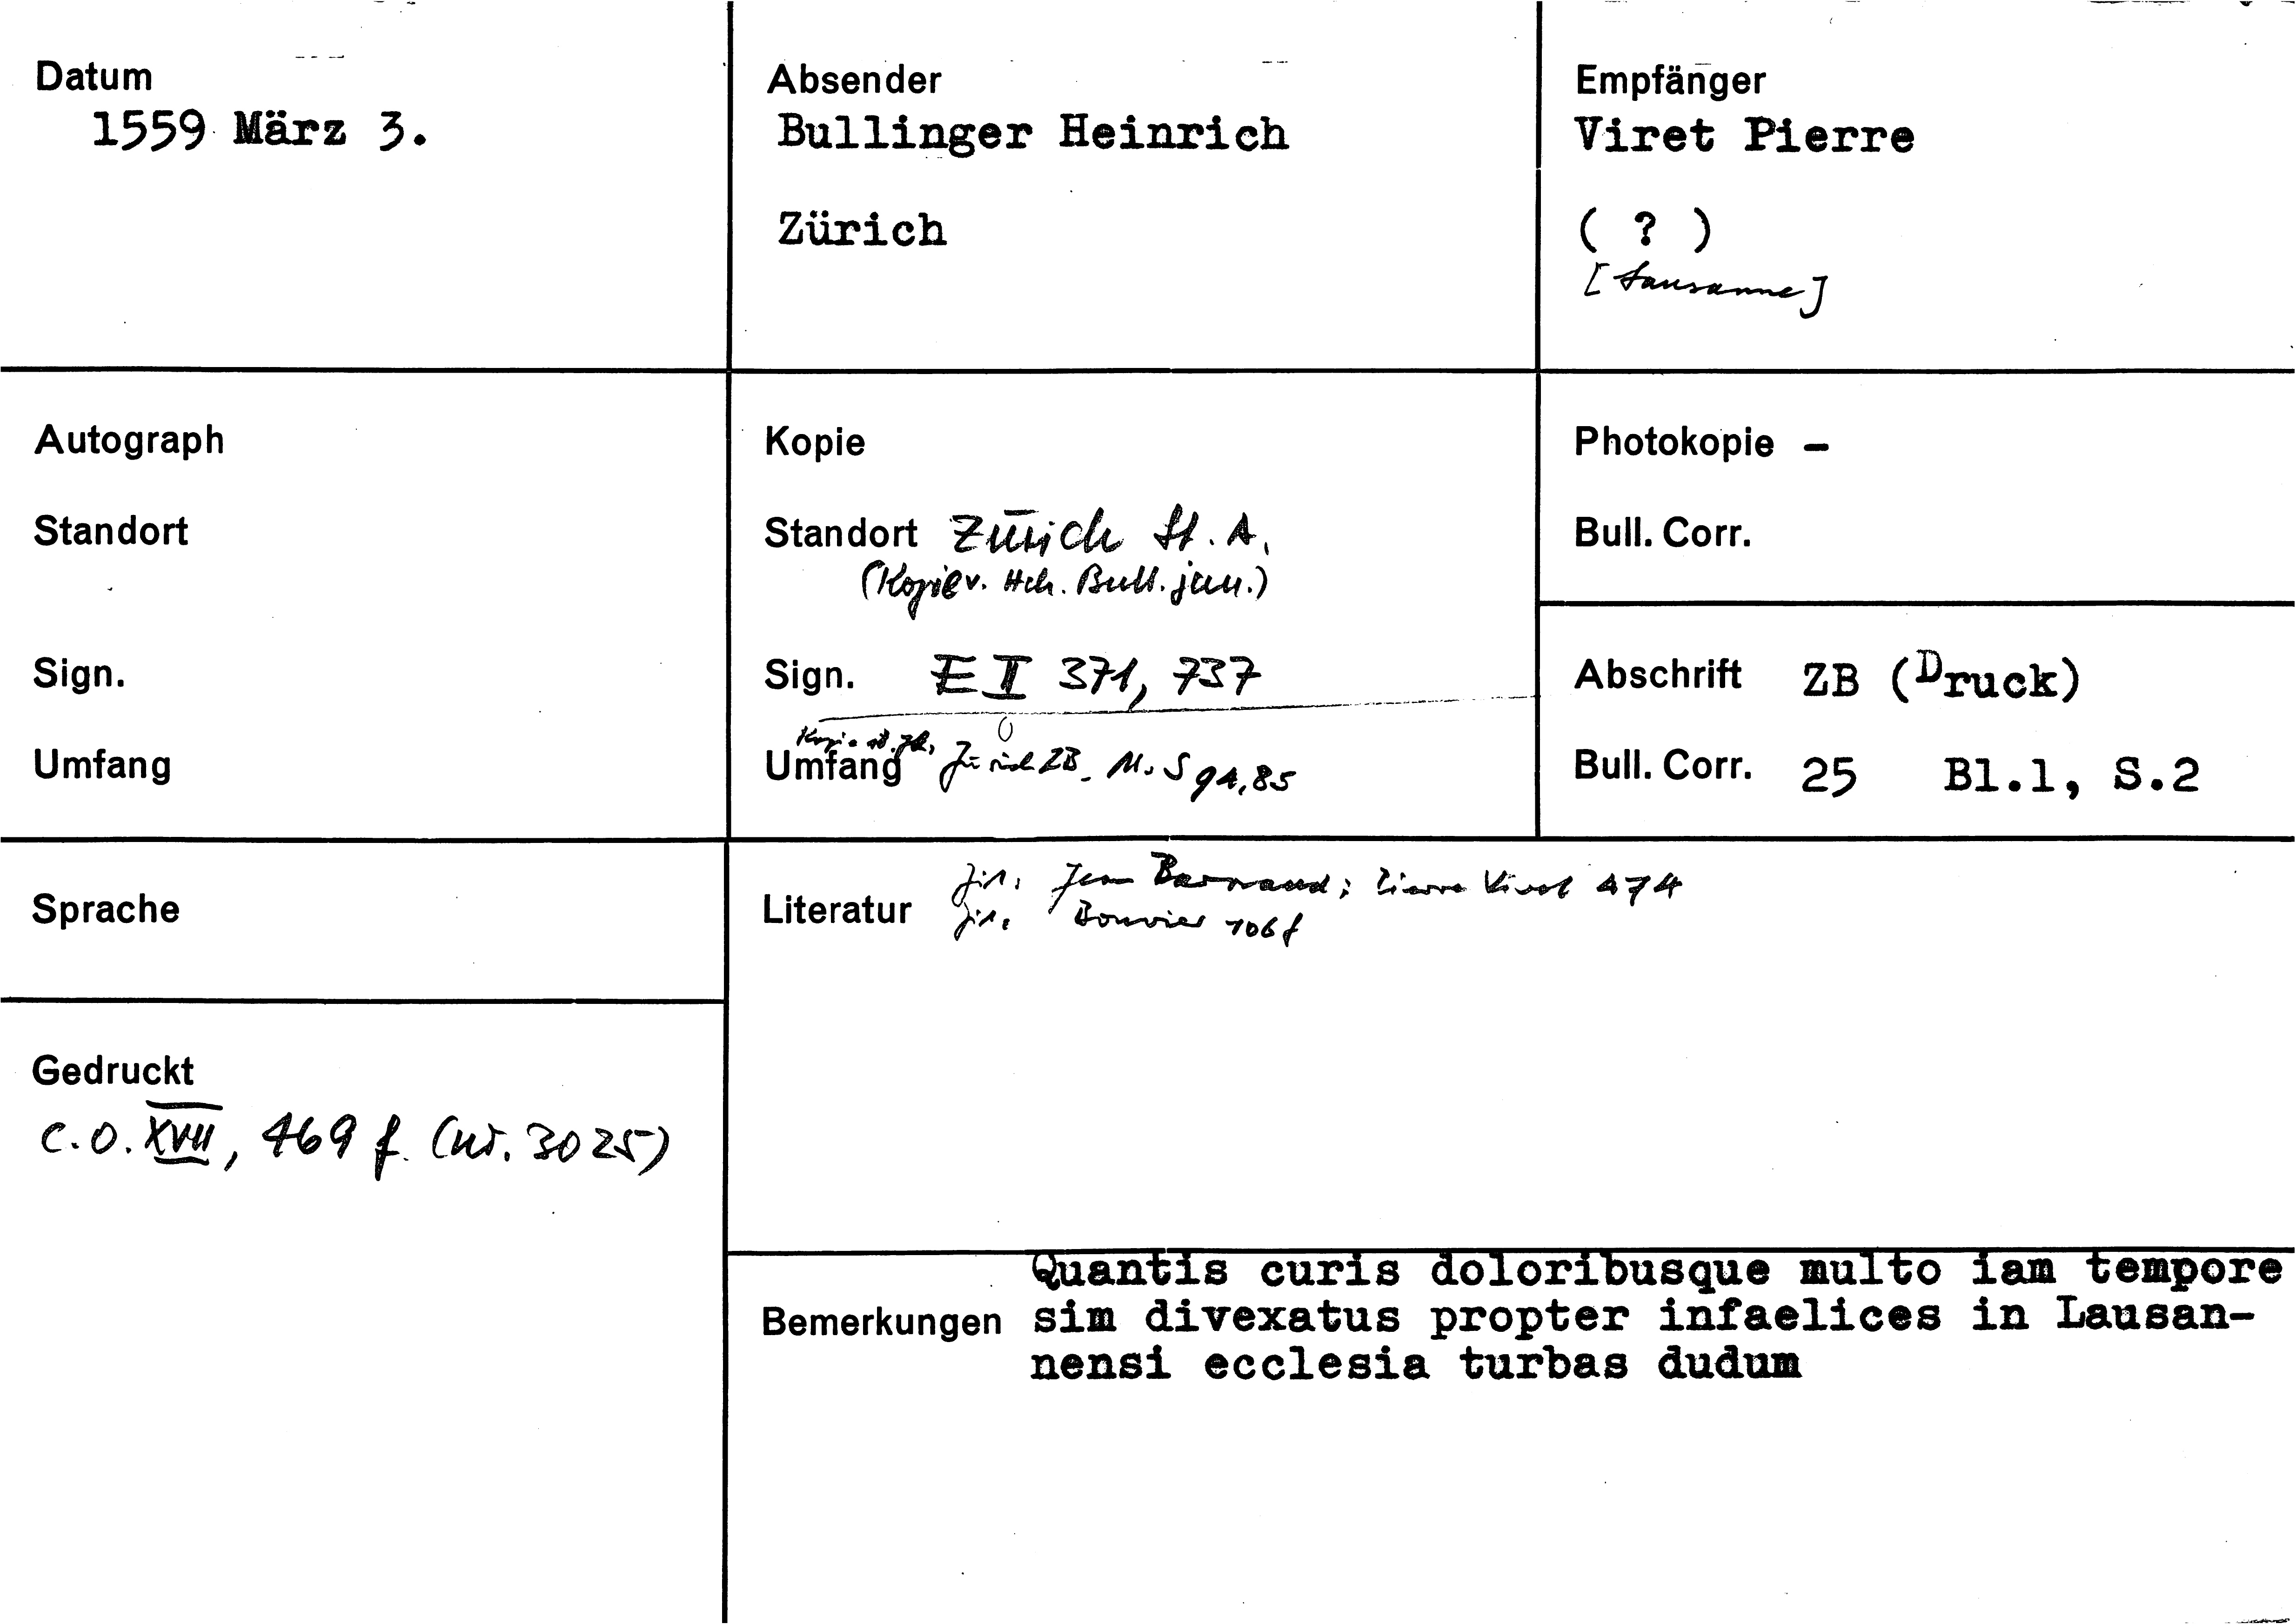 Datum
1559 März 3.
Absender
Bullinger Heinrich
Zürich
Empfänger
Viret Pierre
( ? )
[Lausanne]
Autograph
Standort
Sign.
Umfang
Kopie
Standort Zürich St. A.
(Kopie v. Hch. Bull. jun.)
Sign. E II 371, 737
Umfang Zürich ZB. Ms S 94, 85
Photokopie –
Bull. Corr.
Abschrift ZB (Druck)
Bull. Corr. 25 Bl.1, S.2
Sprache
Literatur Zit. Jean Barnaud; Pierre Viret 474
Zit. Bouvier 106 f
Gedruckt
C.O. XVII, 469 f. (Nr. 3025)
Bemerkungen
Quantis curis doloribusque multo iam tempore
sim divexatus propter infaelices in Lausan-
nensi ecclesia turbas dudum